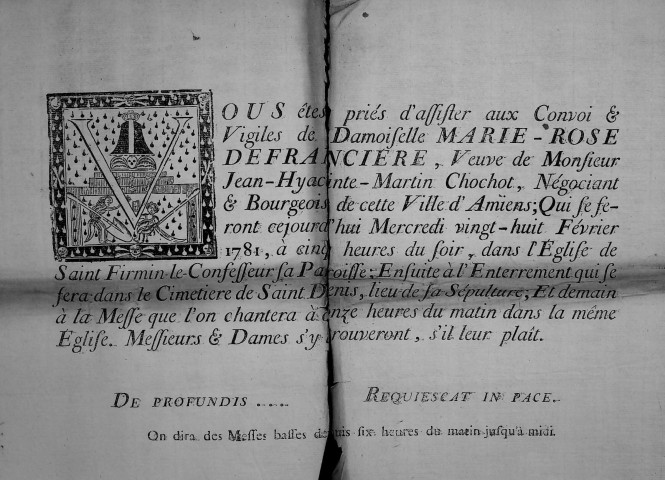 VOUS êtes priés d'aſſiſter aux Convoi &
Vigiles de Damoiſelle MARIE-ROSE
DEFRANCIERE, Veuve de Monſieur
Jean-Hyacinte-Martin Chochot, Négociant
& Bourgeois de cette Ville d'Amiens; Qui ſe fe-
ront cejourd'hui Mercredi vingt-huit Février
1781, à cinq heures du ſoir, dans l'Égliſe de
Saint Firmin-le-Confeſſeur ſa Paroiſſe; Enſuite à l'Enterrement qui ſe
fera dans le Cimetiere de Saint Denis, lieu de ſa Sépulture; Et demain
à la Meſſe que l'on chantera à onze heures du matin dans la même
Égliſe. Meſſieurs & Dames s'y trouveront, s'il leur plaît.
DE PROFUNDIS ..... REQUIESCAT IN PACE.
On dira des Meſſes baſſes depuis ſix heures du matin juſqu'à midi.